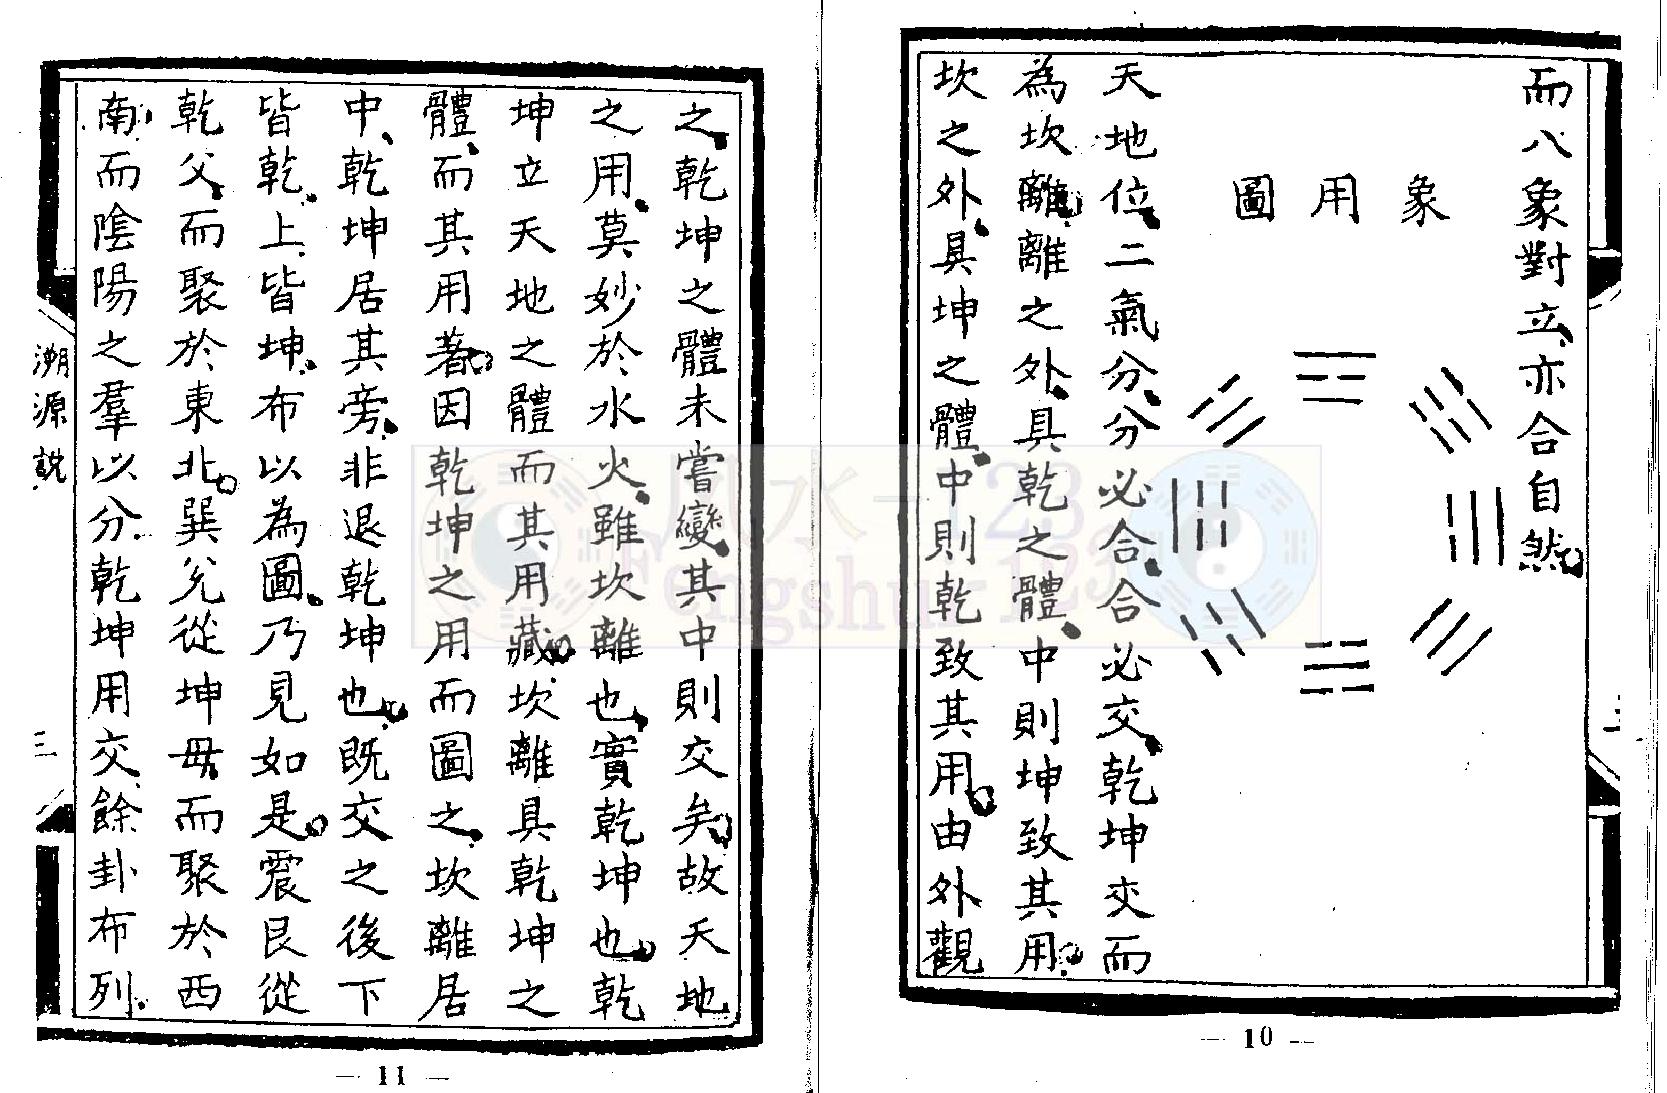 而八象對立、亦合自然。
象用圖
天地位、二氣分、分必合、合必交、乾坤交而
為坎離。離之外、具乾之體、中則坤致其用。
坎之外、具坤之體、中則乾致其用。由外觀
— 10 —
之、乾坤之體未嘗變、其中則交矣。故天地
之用、莫妙於水火、雖坎離也、實乾坤也。乾
坤立天地之體而其用藏。坎離具乾坤之
體、而其用著。因乾坤之用而圖之、坎離居
中、乾坤居其旁、非退乾坤也。既交之後下
皆乾、上皆坤、布以為圖、乃見如是。震艮從
乾父、而聚於東北。巽兌從坤母而聚於西
南、而陰陽之羣以分、乾坤用交、餘卦布列、
溯源說
三
— 11 —
風水-123
Fengshui-123